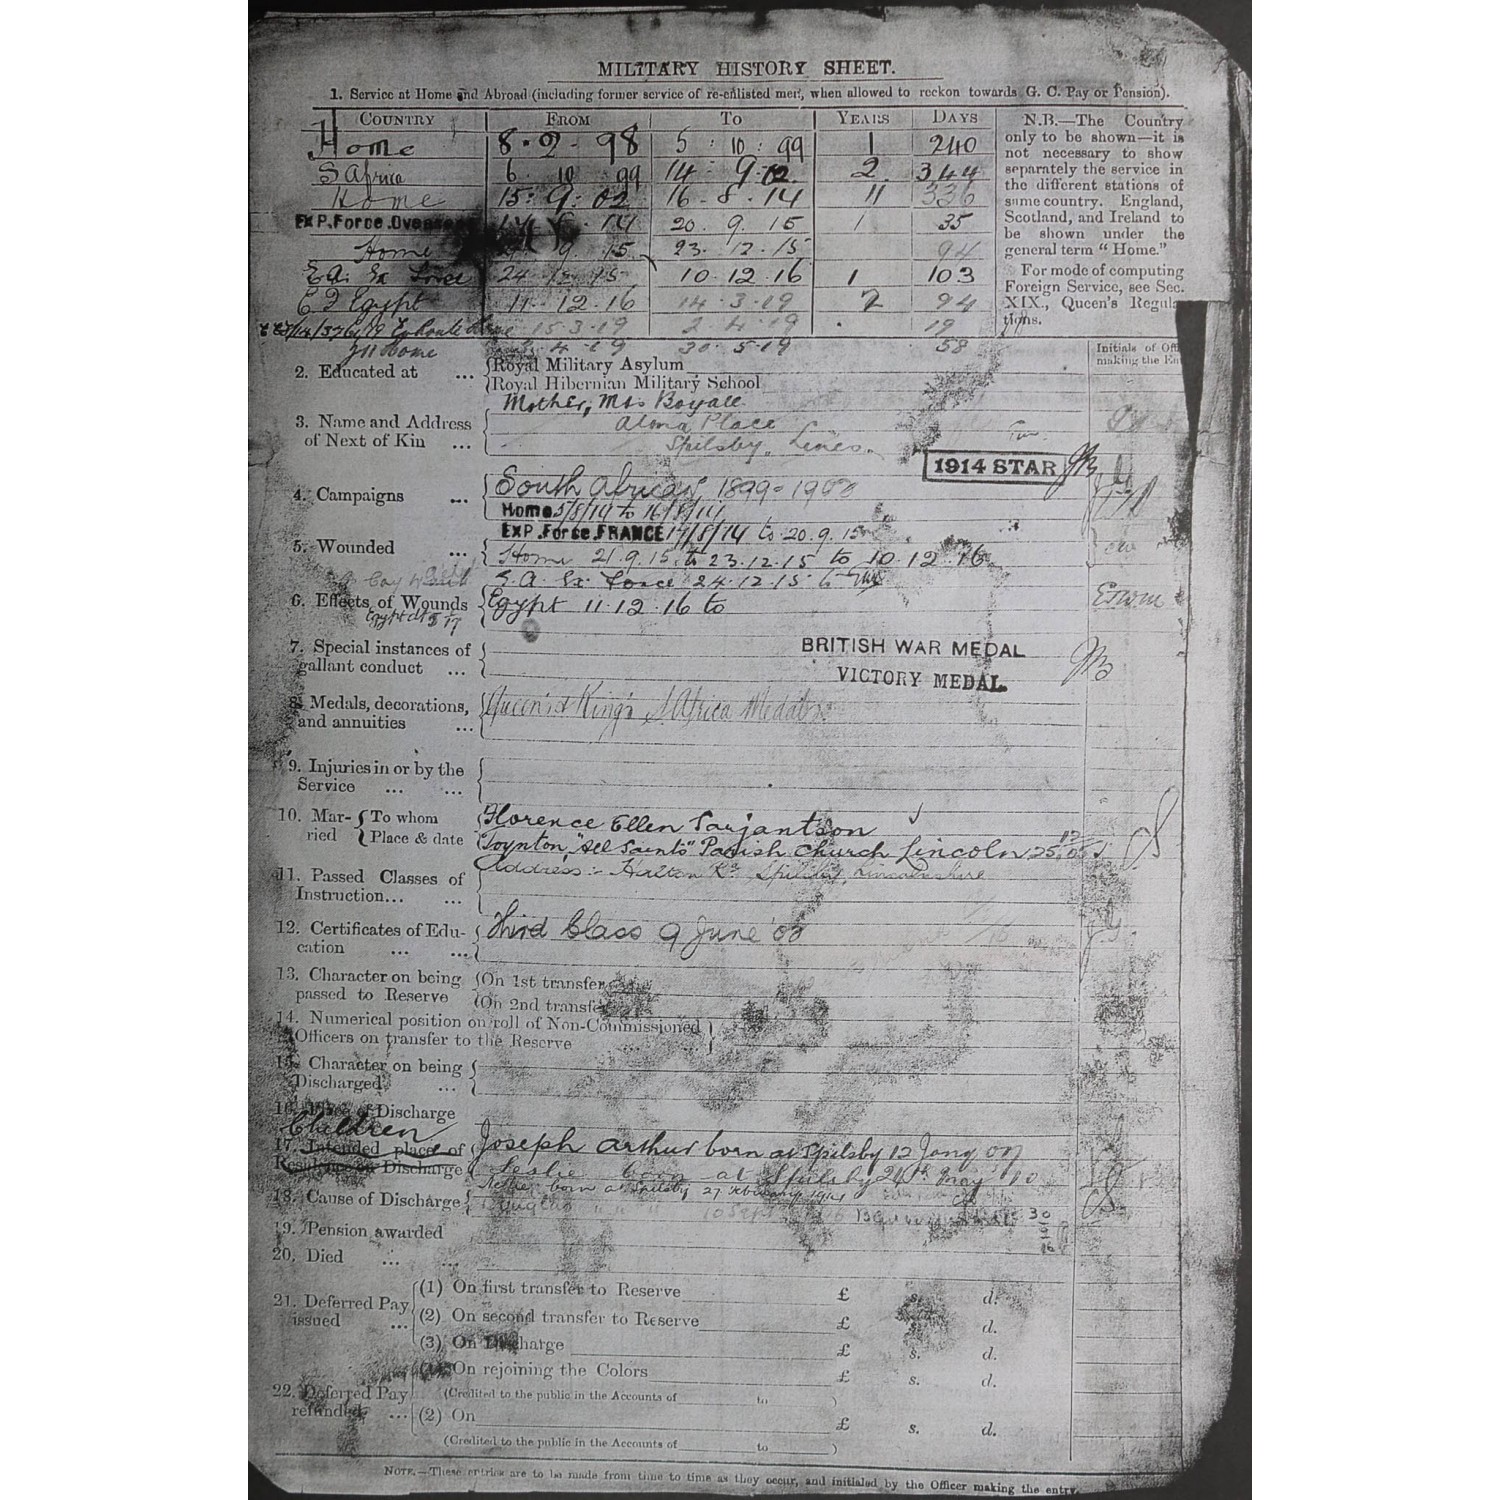 MILITARY HISTORY SHEET.
1. Service at Home and Abroad (including former service of re-enlisted men, when allowed to reckon towards G. C. Pay or Pension).
COUNTRY FROM TO YEARS DAYS
Home 8 . 2 . 98 5 : 10 : 99 1 240
S Africa 6 10 99 14 9 02 2 344
Home 15 : 9 : 02 16 - 8 . 14 11 336
EXP. Force. Overseas 14 20 . 9 . 15 1 35
Home 9 . 15 23 . 12 . 15 94
E.A. Ex Force 24 12 15 10 . 12 . 16 1 103
E F Egypt 11 . 12 . 16 14 . 3 . 19 2 94
15 . 3 . 19 2 4 . 19 19
Home 3 . 4 . 19 30 . 5 . 19 58
N.B.—The Country
only to be shown—it is
not necessary to show
separately the service in
the different stations of
same country. England,
Scotland, and Ireland to
be shown under the
general term "Home."
For mode of computing
Foreign Service, see Sec.
XIX., Queen's Regula-
tions.
Initials of
making the
2. Educated at ... Royal Military Asylum
Royal Hibernian Military School
3. Name and Address
of Next of Kin ...
Mother, Mrs Boyall
Alma Place
Spilsby. Lincs.
1914 STAR JB
4. Campaigns ... South African, 1899-1902
Home 5/8/14 to 16/8/14
EXP. Force. FRANCE 17/8/14 to 20. 9. 15
5. Wounded ... Home 21.9.15 to 23.12.15 to 10.12.16
E.A. Ex Force 24.12.15
6. Effects of Wounds
Egypt 11.12.16 to
7. Special instances of
gallant conduct ...
BRITISH WAR MEDAL
VICTORY MEDAL. JB
8. Medals, decorations,
and annuities ...
Queen's & King's S Africa Medals
9. Injuries in or by the
Service ... ...
10. Mar-
ried
To whom Florence Ellen Sarjantson
Place & date Toynton "All Saints" Parish Church Lincoln 25.12.05
Address :- Halton Rd Spilsby, Lincolnshire
11. Passed Classes of
Instruction... ...
12. Certificates of Edu-
cation ... ...
Third Class 9 June '00
13. Character on being
passed to Reserve
On 1st transfer
On 2nd transfer
14. Numerical position on roll of Non-Commissioned
Officers on transfer to the Reserve
15. Character on being
Discharged ...
16. Place of Discharge
Children
17. Intended place of
Residence on Discharge
Joseph Arthur born at Spilsby 12 Jany 07
Leslie born at Spilsby 26th May 10
born at Spilsby 27 February 1914
18. Cause of Discharge
Douglas
19. Pension awarded
20. Died ... ...
21. Deferred Pay
issued ...
(1) On first transfer to Reserve £ s. d.
(2) On second transfer to Reserve £ s. d.
(3) On Discharge £ s. d.
22. Deferred Pay
refunded ...
(1) On rejoining the Colors £ s. d.
(Credited to the public in the Accounts of to )
(2) On £ s. d.
(Credited to the public in the Accounts of to )
NOTE.—These entries are to be made from time to time as they occur, and initialed by the Officer making the entry.